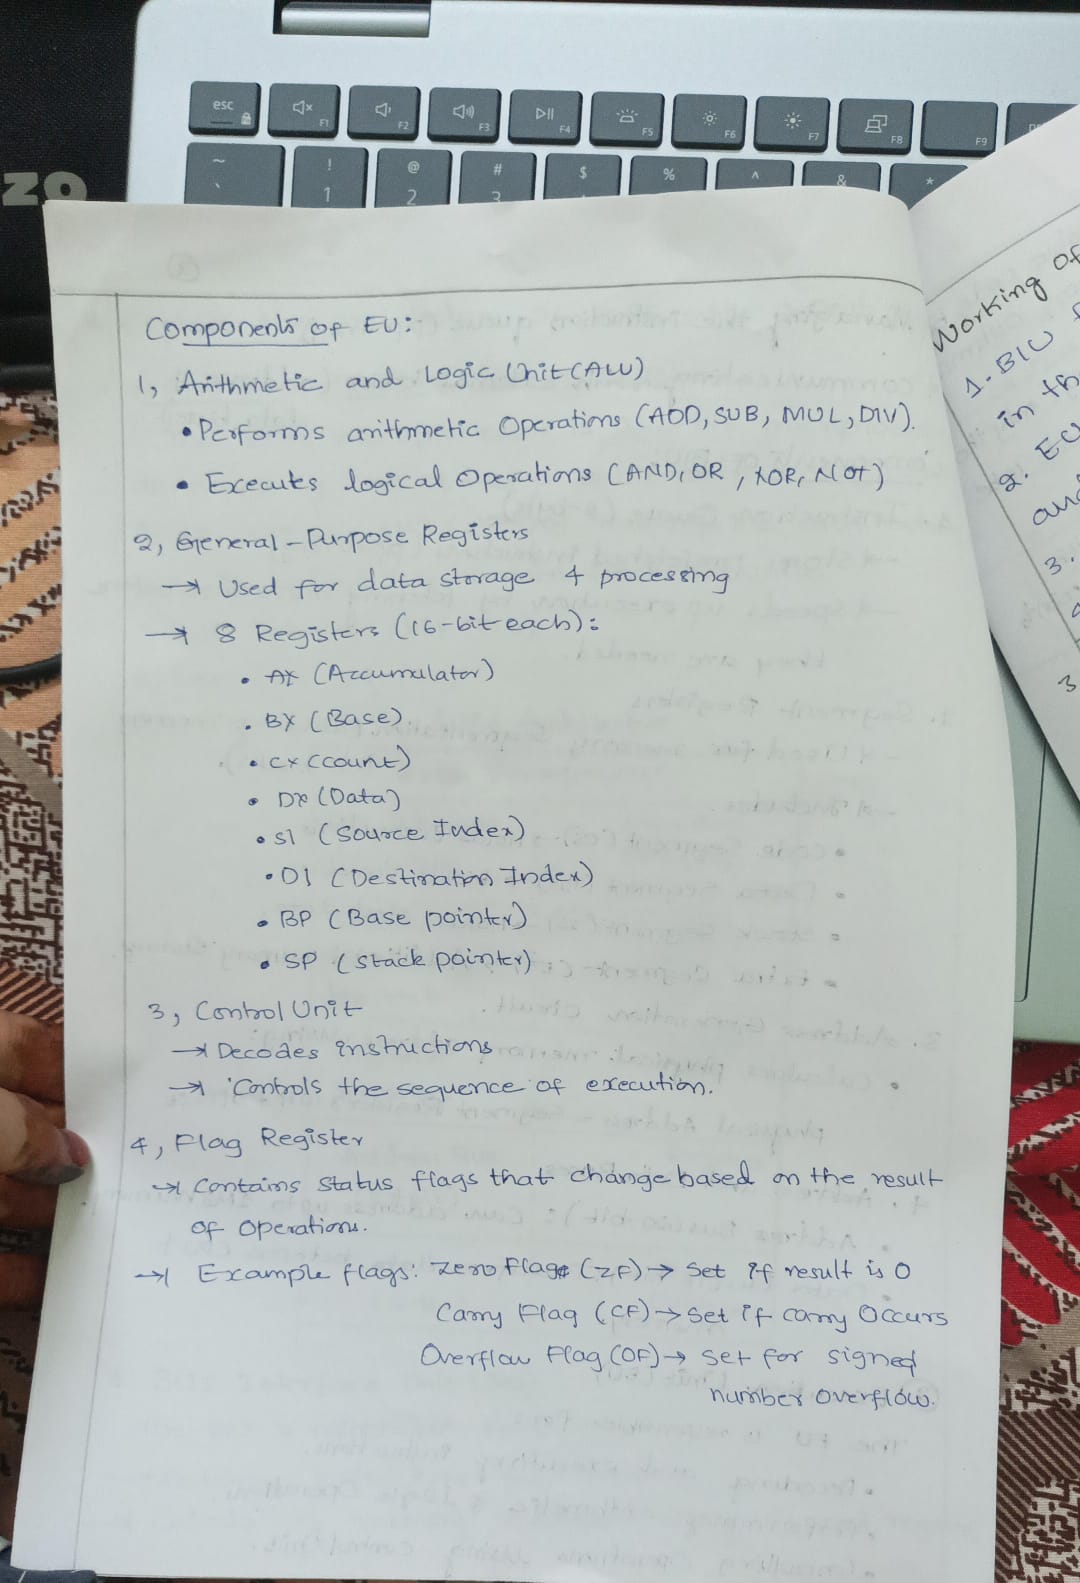 esc
F1
F2
F3
F4
F5
F6
F7
F8
F9
~
!
1
@
2
#
3
$
%
^
&
*
zo
Components of EU:
1, Arithmetic and Logic Unit (ALU)
• Performs arithmetic Operations (ADD, SUB, MUL, DIV).
• Executes logical Operations (AND, OR, XOR, NOT)
2, General-Purpose Registers
→ Used for data storage & processing
→ 8 Registers (16-bit each):
• AX (Accumulator)
• BX (Base)
• CX (Count)
• DX (Data)
• SI (Source Index)
• DI (Destination Index)
• BP (Base pointer)
• SP (Stack pointer)
3, Control Unit
→ Decodes instructions
→ Controls the sequence of execution.
4, Flag Register
→ Contains Status flags that change based on the result
of Operations.
→ Example flags: Zero Flag (ZF) → Set if result is 0
Carry Flag (CF) → Set if carry Occurs
Overflow Flag (OF) → Set for signed
number overflow.
Working of
1. BIU
in th
2. EU
and
3.
3